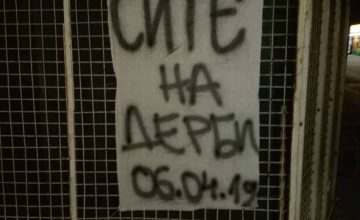 СИТЕ
НА
ДЕРБИ
06.04.19